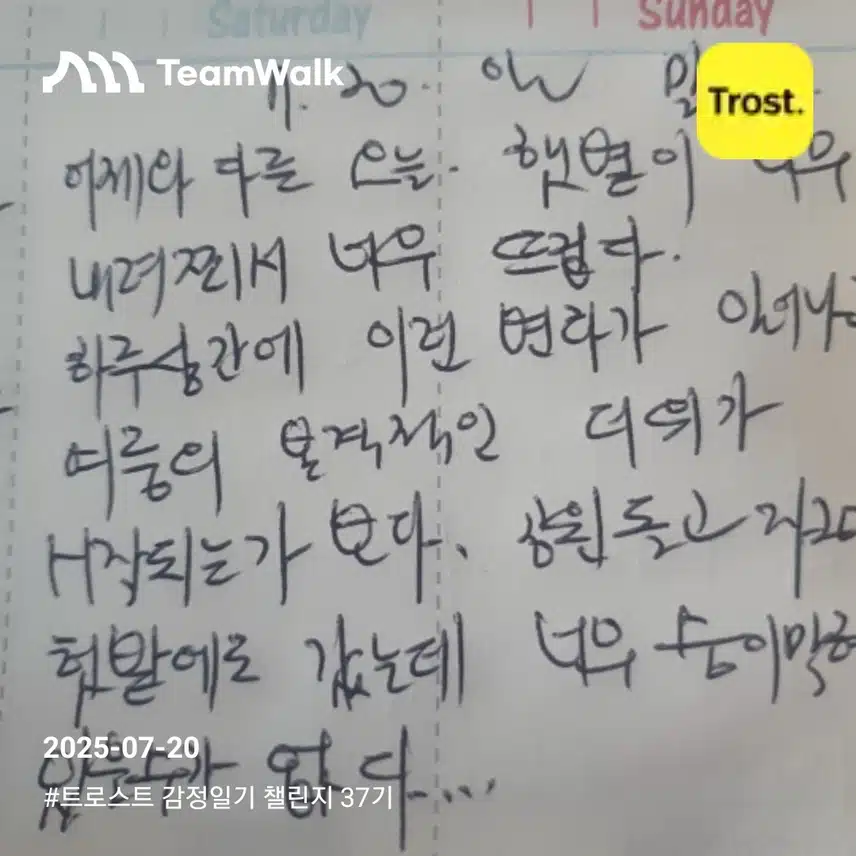 Saturday Sunday
TeamWalk
Trost.
7. 20.
어제와 다른 오늘. 햇볕이 너무
내려쬐서 너무 뜨겁다.
하루상간에 이런 변화가 일어나
여름의 본격적인 더위가
시작되는가 보다. 공원 돌고
텃밭에로 갔는데 너무 숨이막혀
수가 없다....
2025-07-20
#트로스트 감정일기 챌린지 37기